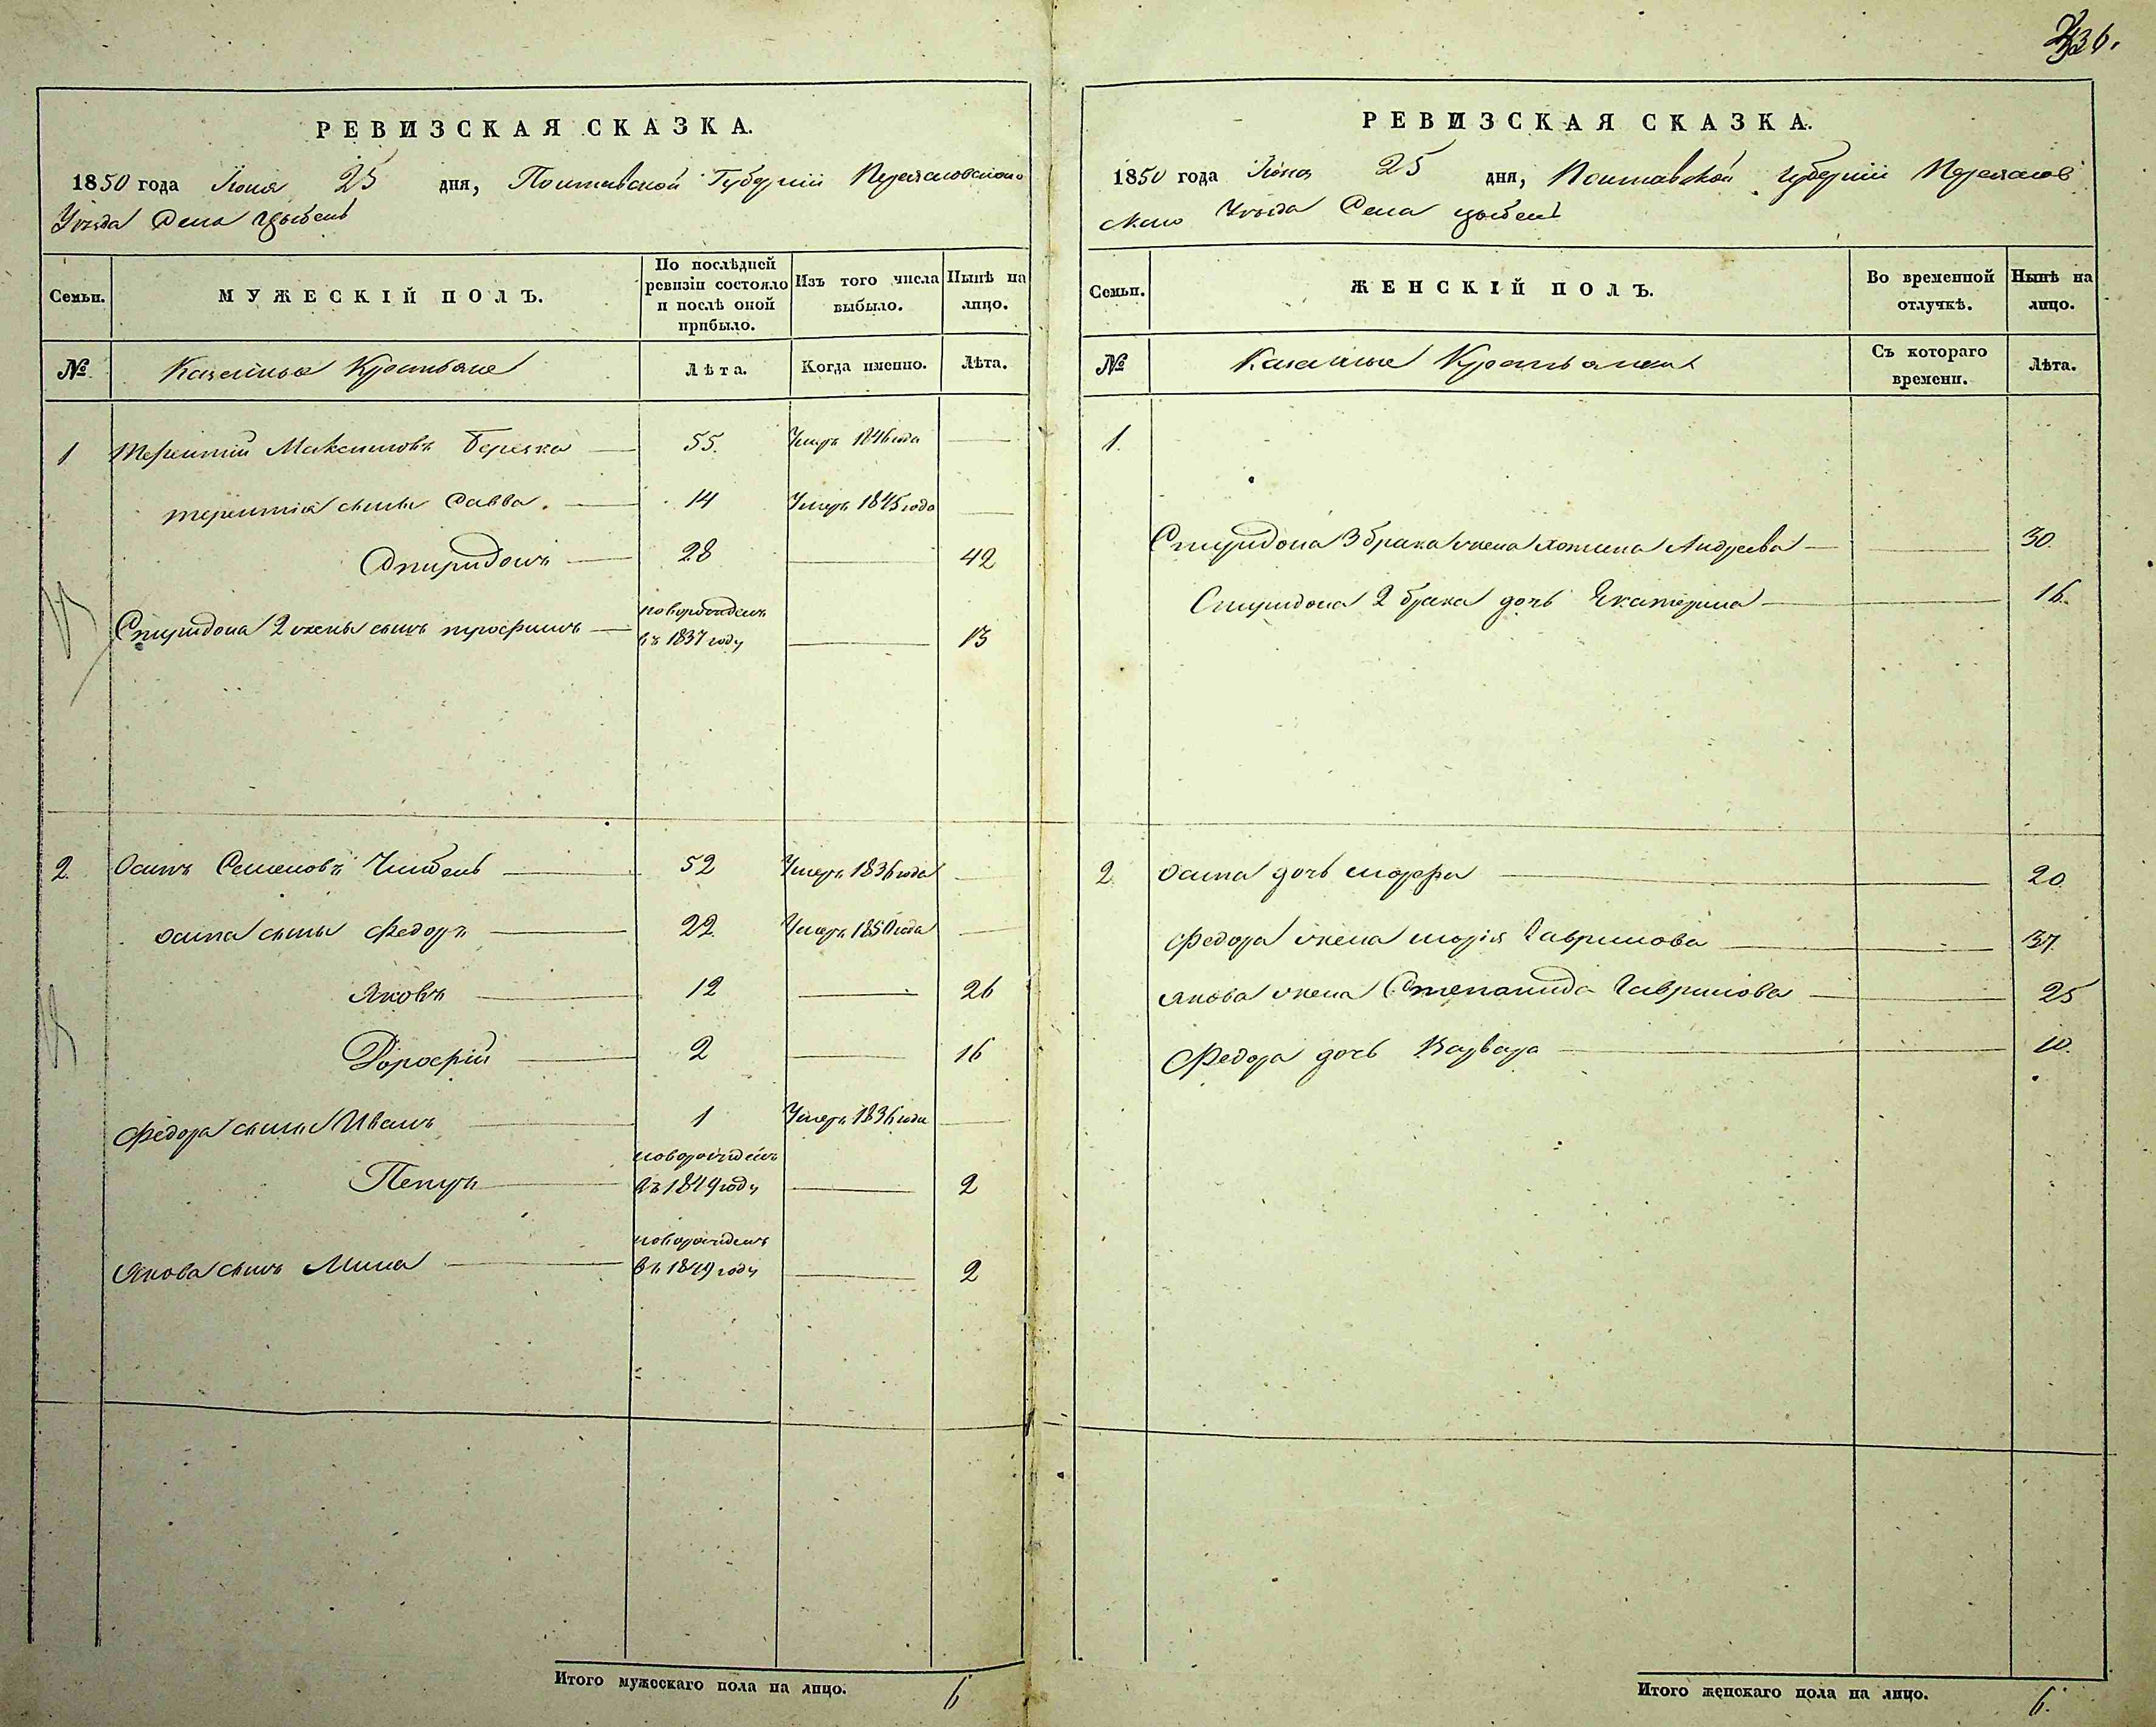 236.
РЕВИЗСКАЯ СКАЗКА.
1850 года Іюня 25 дня, Полтавской Губерніи Переяславского
Уѣзда Села Цыбель
Семьи. МУЖЕСКІЙ ПОЛЪ. По послѣдней ревизіи состояло и послѣ оной прибыло. Изъ того числа выбыло. Нынѣ на лицо.
№ Казенные Крестьяне Лѣта. Когда именно. Лѣта.
1 Терентій Максимовъ Березка 55. Умеръ 1846 года
Терентія сынъ Савва. 14 Умеръ 1845 года
Спиридонъ 28 42
Спиридона 2 жены сынъ Трофимъ новорожденъ въ 1837 году 13
2. Осипъ Семеновъ Чибель 52 Умеръ 1836 года
Осипа сынъ Федоръ 22 Умеръ 1850 года
Яковъ 12 26
Дорофій 2 16
Федора сынъ Иванъ 1 Умеръ 1836 года
Петръ новорожденъ въ 1849 году 2
Якова сынъ Мина новорожденъ въ 1849 году 2
Итого мужескаго пола на лицо. 6
РЕВИЗСКАЯ СКАЗКА.
1850 года Іюня 25 дня, Полтавской Губерніи Переяслов
ского Уѣзда Села Цыбель
Семьи. ЖЕНСКІЙ ПОЛЪ. Во временной отлучкѣ. Нынѣ на лицо.
№ Казенные Крестьянки Съ котораго времени. Лѣта.
1.
Спиридона 3 брака жена Андреева 30.
Спиридона 2 брака дочь Екатерина 16.
2 Осипа дочь Марфа 20.
Федора жена Марія Гаврилова 37.
Якова жена Степанида Гаврилова 25
Федора дочь Варвара 10.
Итого женскаго пола на лицо. 6.